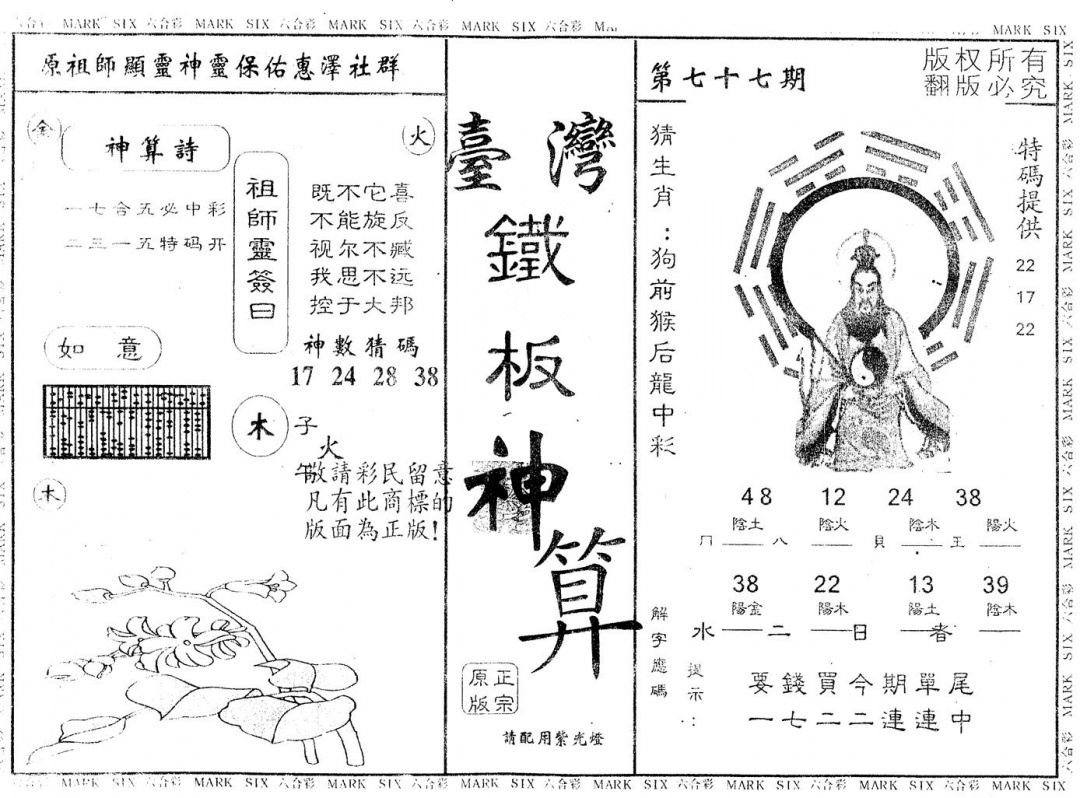 MARK SIX 六合彩 MARK SIX 六合彩 MARK SIX 六合彩 MARK SIX 六合彩
MARK SIX
原祖師顯靈神靈保佑惠澤社群
金
神算詩
火
一七合五必中彩
二三一五特码开
祖師靈簽曰
既不它喜
不能旋反
视尔不臧
我思不远
控于大邦
神數猜碼
17 24 28 38
如意
木
子
火
午
木
敬請彩民留意
凡有此商標的
版面為正版!
臺灣
鐵
板
神
算
正宗
原版
請配用紫光燈
第七十七期
版权所有
翻版必究
猜生肖:狗前猴后龍中彩
特碼提供
22
17
22
48 12 24 38
陰土 陰火 陰木 陽火
冂 八 貝 王
38 22 13 39
陽金 陽木 陽土 陰木
水 二 日 者
解字應碼
提示:
要錢買今期單尾
一七二二連連中
MARK SIX 六合彩 MARK SIX 六合彩 MARK SIX 六合彩 MARK SIX 六合彩 MARK SIX 六合彩 MARK SIX 六合彩 MARK SIX 六合彩 MARK SIX